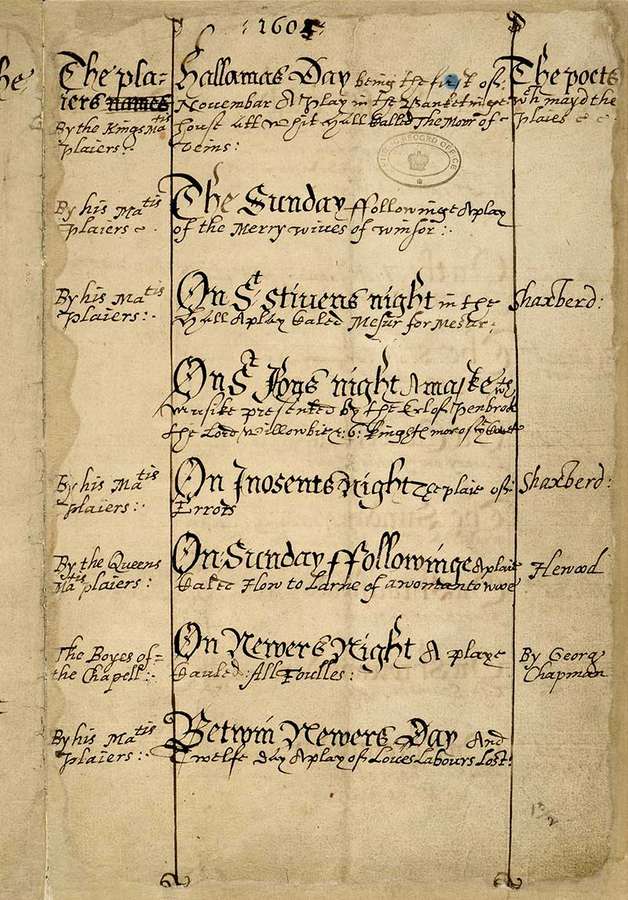 : 1605 :
The plaiers
By the Kings Matis plaiers:
Hallamas Day being the first of
Novembar A play in the Banketinge
house att whithall Called The Moor of
Venis:
The poets
wch mayd the
plaies
By his Matis
plaiers:
The Sunday ffollowinge A play
of the Merry wives of winsor:
By his Matis
plaiers:
On St Stivens night in the
Hall A play Caled Mesur for Mesur:
Shaxberd:
On St Jons night A maske wth
musike presented by the Erl of Penbrok
the Lord willowbie & 6 Knights more of
By his Matis
plaiers:
On Inosents Night The plaie of
Errors
Shaxberd:
By the Queens
Matis plaiers:
On Sunday ffollowinge A plaie
Caled How to Larne of a woman to wooe
Hewood
The Boyes of
the Chapell:
On Newers Night A playe
Cauled: All Foulles:
By Georg
Chapman
By his Matis
plaiers:
Betwin Newers Day And
Twelfe day A play of Loves Labours Lost:
PUBLIC RECORD OFFICE